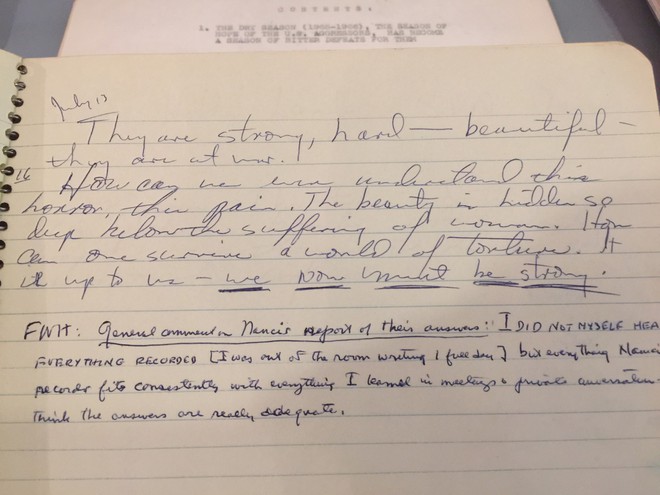 CONTENTS.
1. THE DRY SEASON (1965-1966), THE SEASON OF
HOPE OF THE U.S. AGGRESSORS, HAS BECOME
A SEASON OF BITTER DEFEATS FOR THEM
July 13
They are strong, hard — beautiful —
they are at war.
16
How can we ever understand this
horror, this pain. The beauty is hidden so
deep below the suffering of woman. How
can one survive a world of torture. It
is up to us — we now must be strong.
FWH: General comment on Nanci's report of their answers: I DID NOT MYSELF HEA
EVERYTHING RECORDED [I was out of the room writing 1 full day] but everything Nanci
recorder fits consistently with everything I learned in meetings & private conversation
think the answers are really adequate.